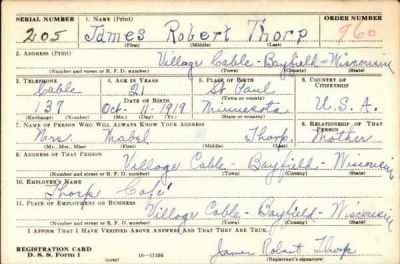 SERIAL NUMBER 1. NAME (Print) ORDER NUMBER
205 James Robert Thorp 960
(First) (Middle) (Last)
2. ADDRESS (Print)
Village Cable - Bayfield - Wisconsin
(Number and street or R. F. D. number) (Town) (County) (State)
3. TELEPHONE 4. AGE IN YEARS 5. PLACE OF BIRTH 6. COUNTRY OF CITIZENSHIP
Cable 21 St Paul
(Town or county)
DATE OF BIRTH
137 Oct - 11 - 1919 Minnesota U.S.A.
(Exchange) (Number) (Mo.) (Day) (Yr.) (State or country)
7. NAME OF PERSON WHO WILL ALWAYS KNOW YOUR ADDRESS 8. RELATIONSHIP OF THAT PERSON
Mrs. Mabel Thorp Mother
(Mr., Mrs., Miss) (First) (Middle) (Last)
9. ADDRESS OF THAT PERSON
Village Cable - Bayfield - Wisconsin
(Number and street or R. F. D. number) (Town) (County) (State)
10. EMPLOYER'S NAME
Thorps Café
11. PLACE OF EMPLOYMENT OR BUSINESS
Village Cable - Bayfield - Wisconsin
(Number and street or R. F. D. number) (Town) (County) (State)
I AFFIRM THAT I HAVE VERIFIED ABOVE ANSWERS AND THAT THEY ARE TRUE.
REGISTRATION CARD
D. S. S. Form 1 (over) 16-17105 James Robert Thorp
(Registrant's signature)